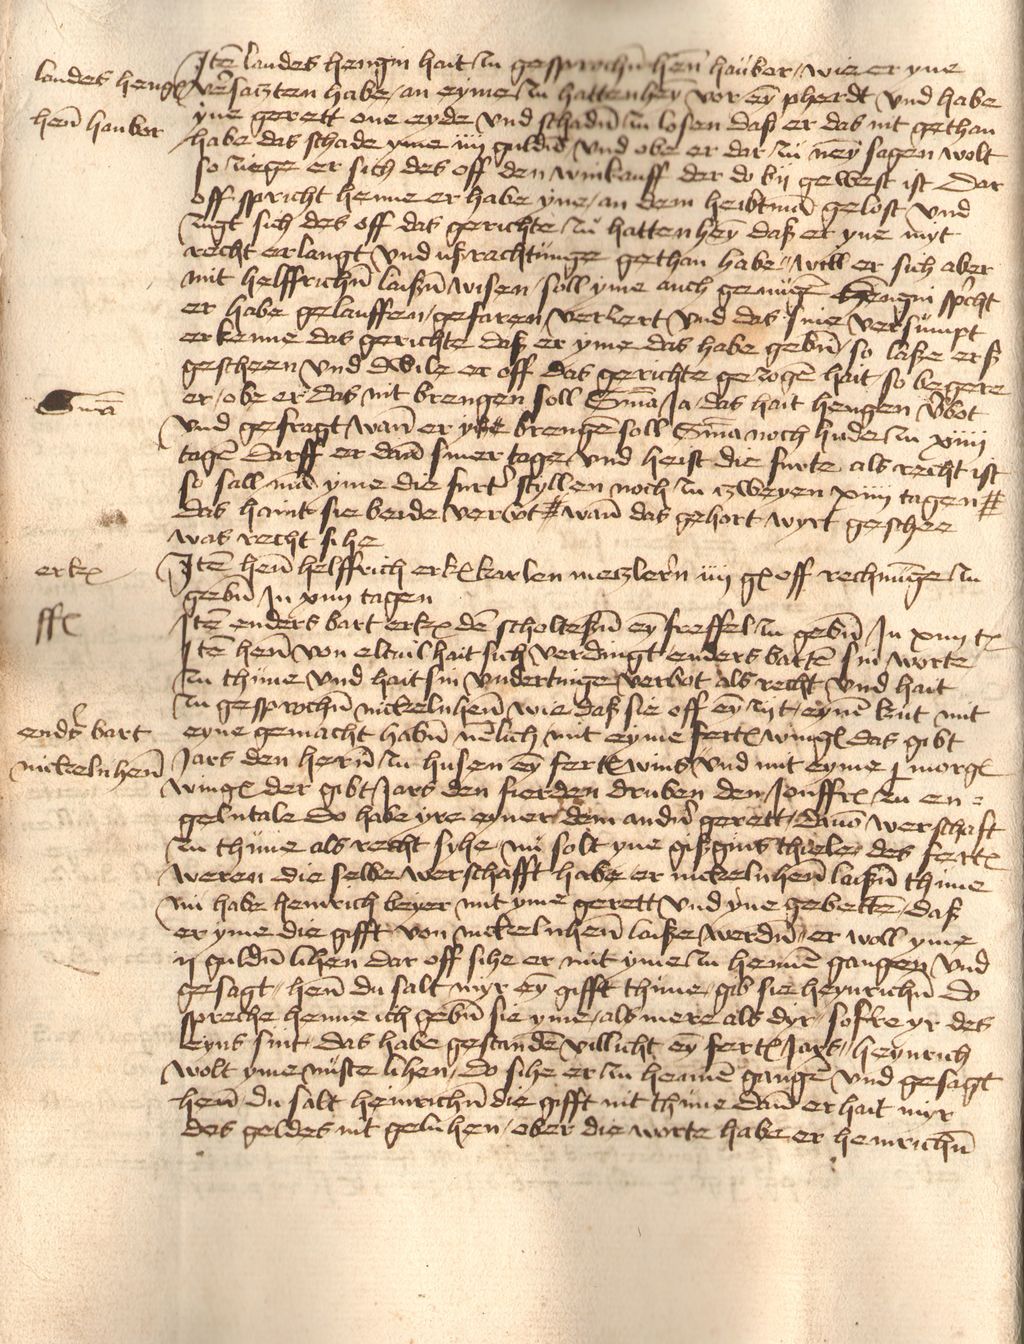 landes heng
henn haubor
Jtē landes hengin hait zu gesprochin henn haubor / wie er yne
versatzten habe / an eyme zu hattenhey vor ey pherdt vnd habe
yne gerett one eyde vnd schadn zu losen daß er das nit gethan
habe das schade yme iiij guldn vnd obe er dar zu neyn sagen wolt
so ziege er sich des off den winkauff der do by gewest ist Dar
off spricht henne er habe yne / an dem heubtmā gelost vnd
zugt sich des off das gerichte zu hattenhey daß er yne myt
recht erlangt vnd ußrachtunge gethan habe / will er sich aber
mit helffrichn laißn wisen / soll yme auch genugē hengin spricht
er habe gelauffen / gefaren verzert vnd das sine versumpt
erkenne das gerichte daß er yme das habe gebn / so laße erß
gescheen vnd dwile er off das gerichte gezogē hait / so begere
er / obe er das nit brengen soll Sniā Ja / das hait hengen vbot
vnd gefragt wan er yne brengē soll Sniā noch hude zu xiiij
tagē Darff er dan siner tage vnd heist die furte als recht ist
so sall mā yme die furt styllen noch zu zweyen xiiij tagen #
das haint sie beide verbot # wan das gehort wyrt geschee
was recht sihe
Sniā
erk
Jtē henn helffrich erk karlen metzlern iiij g off rechnūge zu
gebn Jn xiiij tagen
ff
Jtē enders bart erk dē scholtesn ey freffel zu gebn Jn xiiij t
Jtē henn von eltuil hait sich verdingt enders bartē sin worte
zu thune vnd hait sin vndertinge verbot als recht vnd hait
zu gesprochn nickelnhenn wie daß sie off ey zyt / eynē kut mit
enders bart
nickelnhenn
eyne gemacht habn nēlich mit eyme fertē wingt das gibt
Jars den hern zu husen ey fertē wins vnd mit eyme j morg
wing der gibt Jars den fierden druben den Jonffr zu en =
gelntale Do habe yre eyner dem andern gerett / danō werschaft
zu thune als recht syhe nu solt yne gißgins thiele des fertē
weren die selbe werschafft habe er nickelnhenn laißn thune
nu habe heinrich beyer mit yme gerett vnd yne gebettē / daß
er yme die gifft von nickelnhenn laiße werdn / er woll yme
ij guldn lihen dar off sihe er mit yme zu hennē gangen vnd
gesagt / henn du salt myr ey gifft thune / gib sie heynrichn do
spreche henne ich gebn sie yme / als mere als dyr / so fre yr des
eyns sint / das habe gestandē villicht ey fertē Jars / heynrich
wolt yme nuste lihen / do sihe er zu hennē gangē vnd gesagt
henn du salt heinrichn die gifft nit thune dan er hait myr
des geldes nit geluhen / ober die worte habe er heinrichn